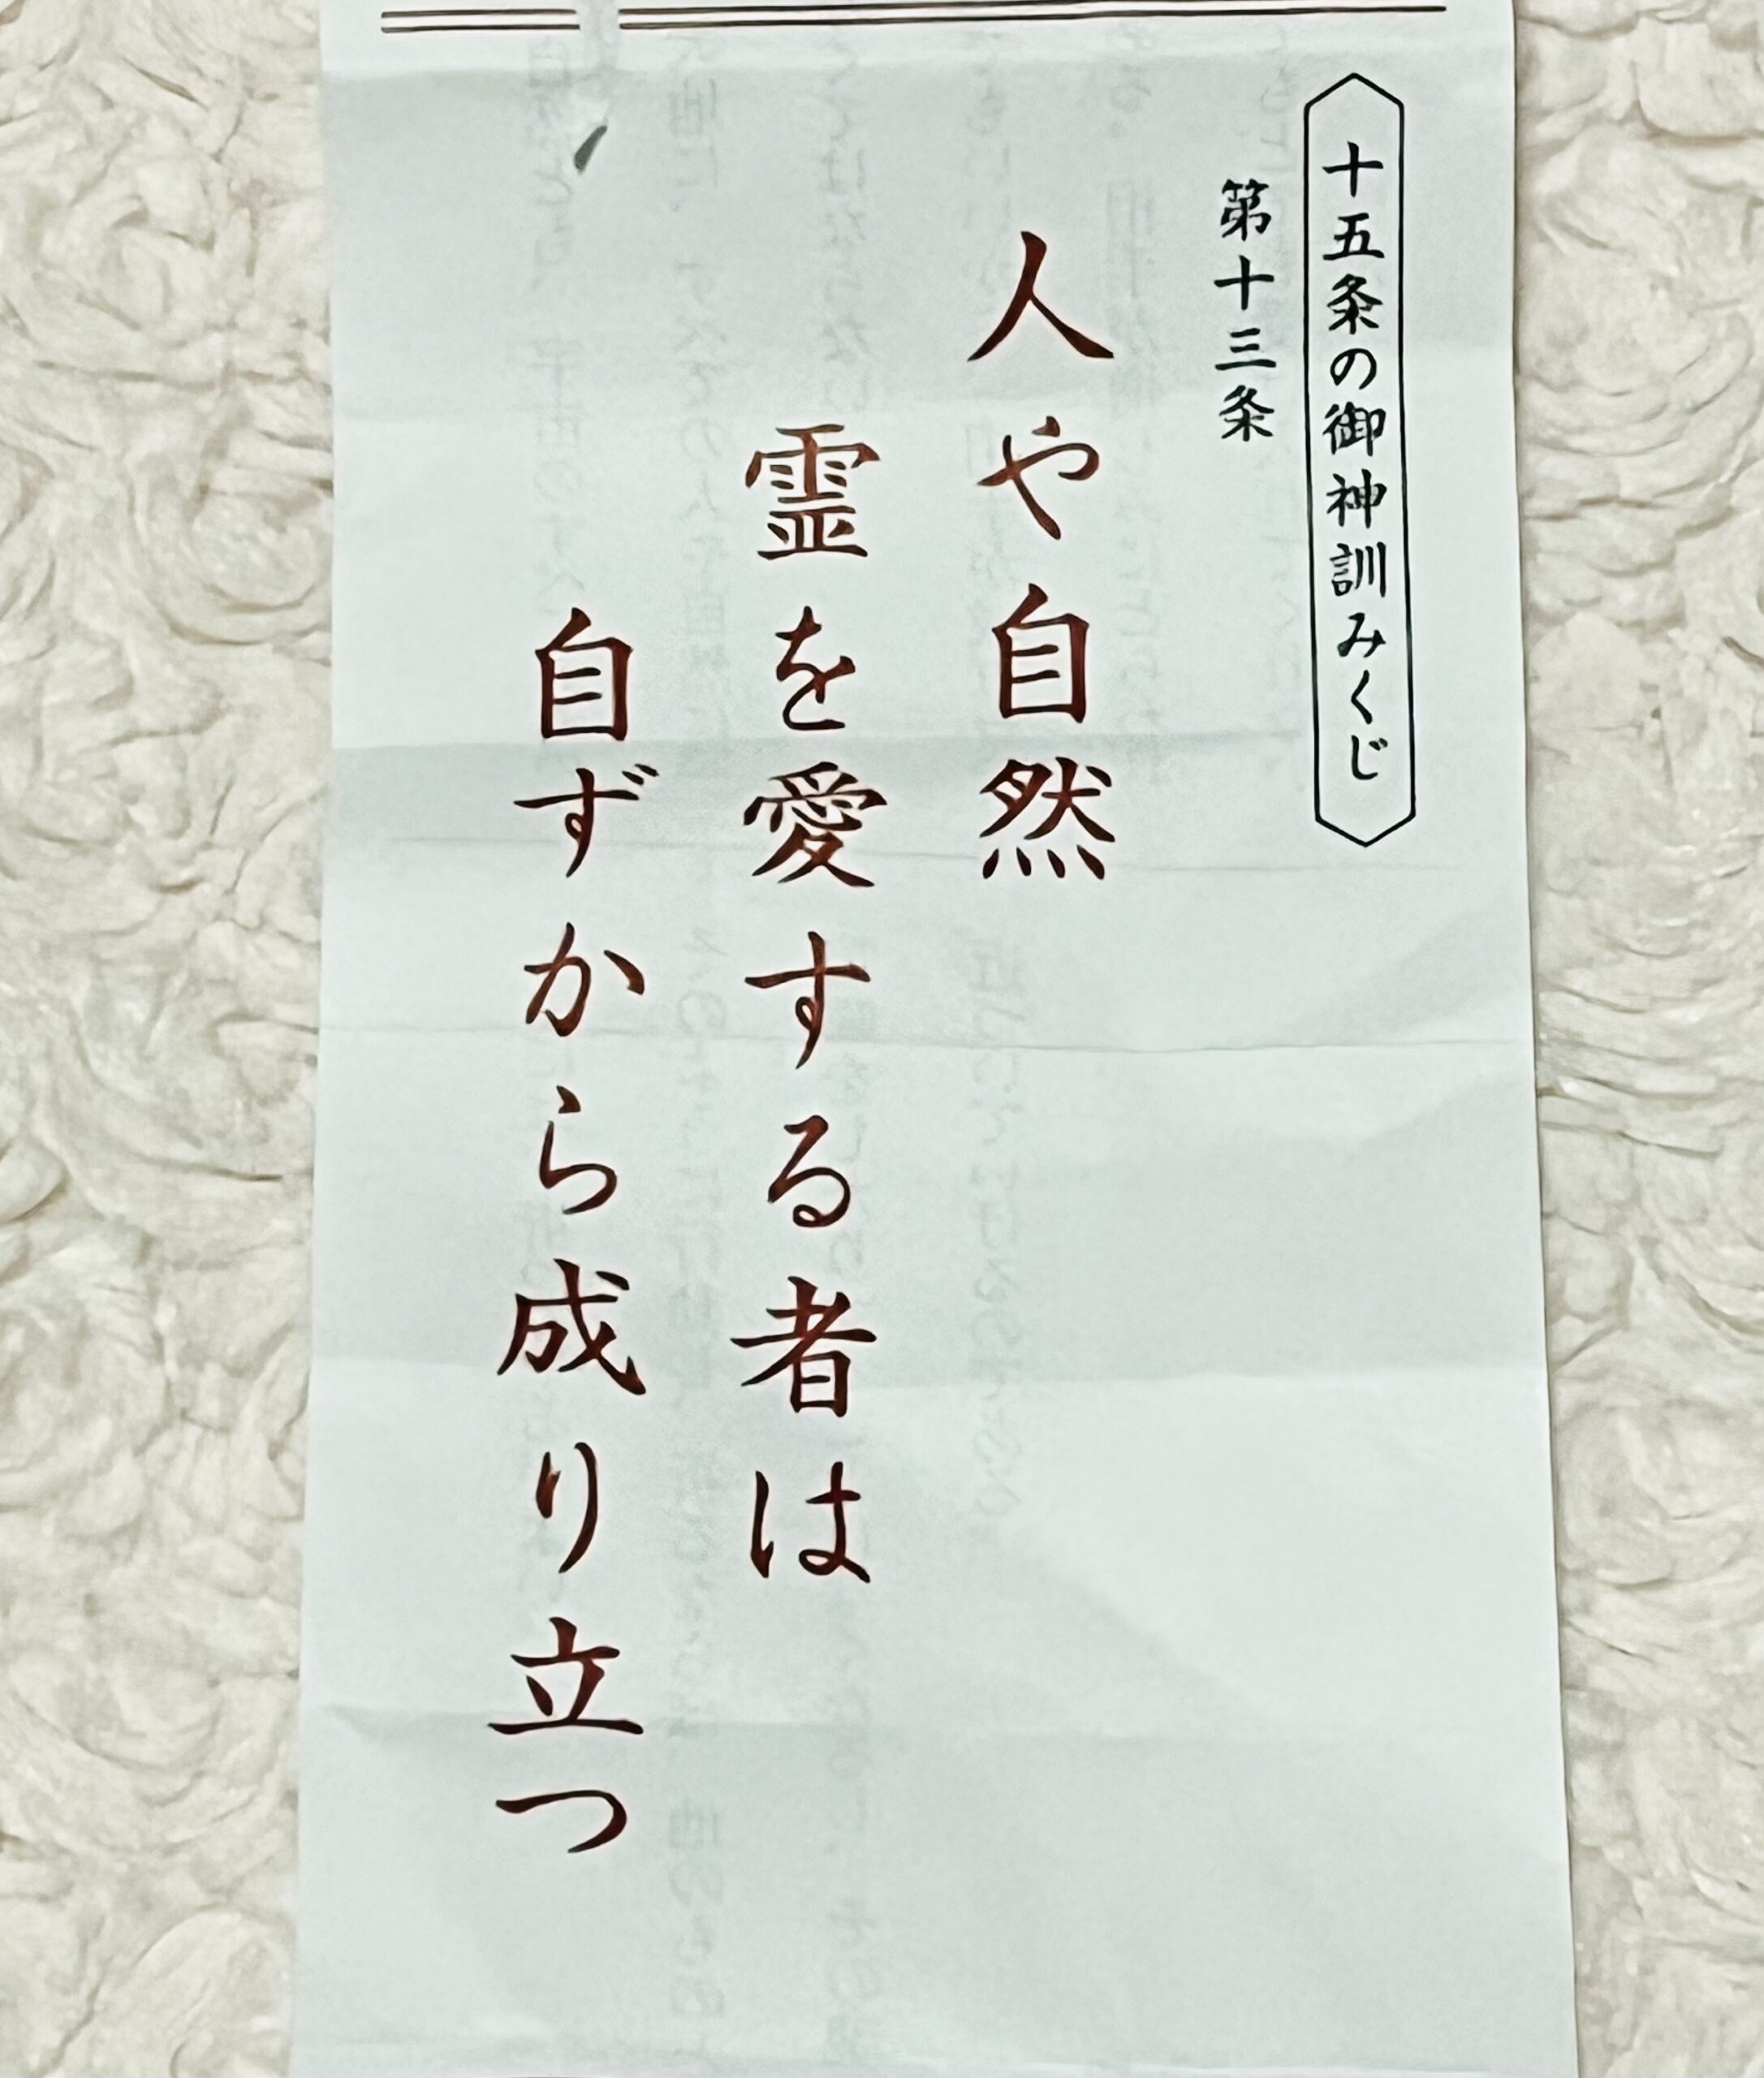 十五条の御神訓みくじ
第十三条
人や自然
霊を愛する者は
自ずから成り立つ